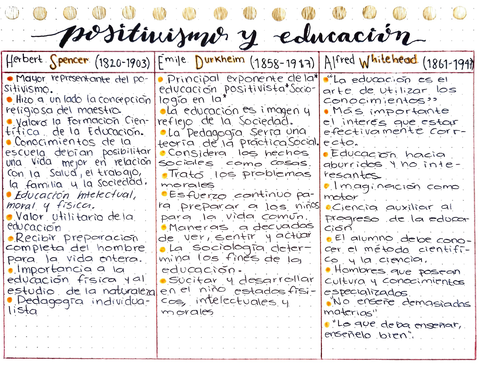 positivismo y educación
Herbert Spencer (1820-1903)
• Mayor representante del po-
sitivismo.
• Hizo a un lado la concepción
religiosa del maestro.
• Valora la Formación Cien-
tífica de la Educación.
• Conocimientos de la
escuela debían posibilitar
una vida mejor en relación
con la salud, el trabajo,
la familia y la Sociedad.
• Educación intelectual,
moral y física.
• Valor utilitario de la
educación
• Recibir preparación
completa del hombre
para la vida entera.
• Importancia a la
educación física y al
estudio de la naturaleza
• Pedagogía individua-
lista
Emile Durkheim (1858-1917)
• Principal exponente de la
educación positivista "Socio-
logía en la"
• La educación es imagen y
reflejo de la Sociedad.
• La Pedagogía Sería una
teoría de la práctica Social.
• Considera los hechos
sociales como cosas.
• Trató los problemas
morales
• Esfuerzo continuo pa-
ra preparar a los niños
para la vida común.
• Maneras adecuadas
de ver, sentir y actuar
• La Sociología deter-
mina los fines de la
educación.
• Sucitar y desarrollar
en el niño estados físi-
cos, intelectuales y
morales
Alfred Whitehead (1861-1947)
• "La educación es el
arte de utilizar los
conocimientos"
• Más importante
el interés que estar
efectivamente corr-
ecto.
• Educación hacia
aburridos y no inte-
resantes
• Imaginación como
motor
• Ciencia auxiliar al
progreso de la educa-
ción
• El alumno debe cono-
cer el método científi-
co, y la ciencia.
• Hombres que posean
cultura y conocimientos
especializados
• "No enseñe demasiadas
materias"
• "Lo que deba enseñar,
enseñelo bien".